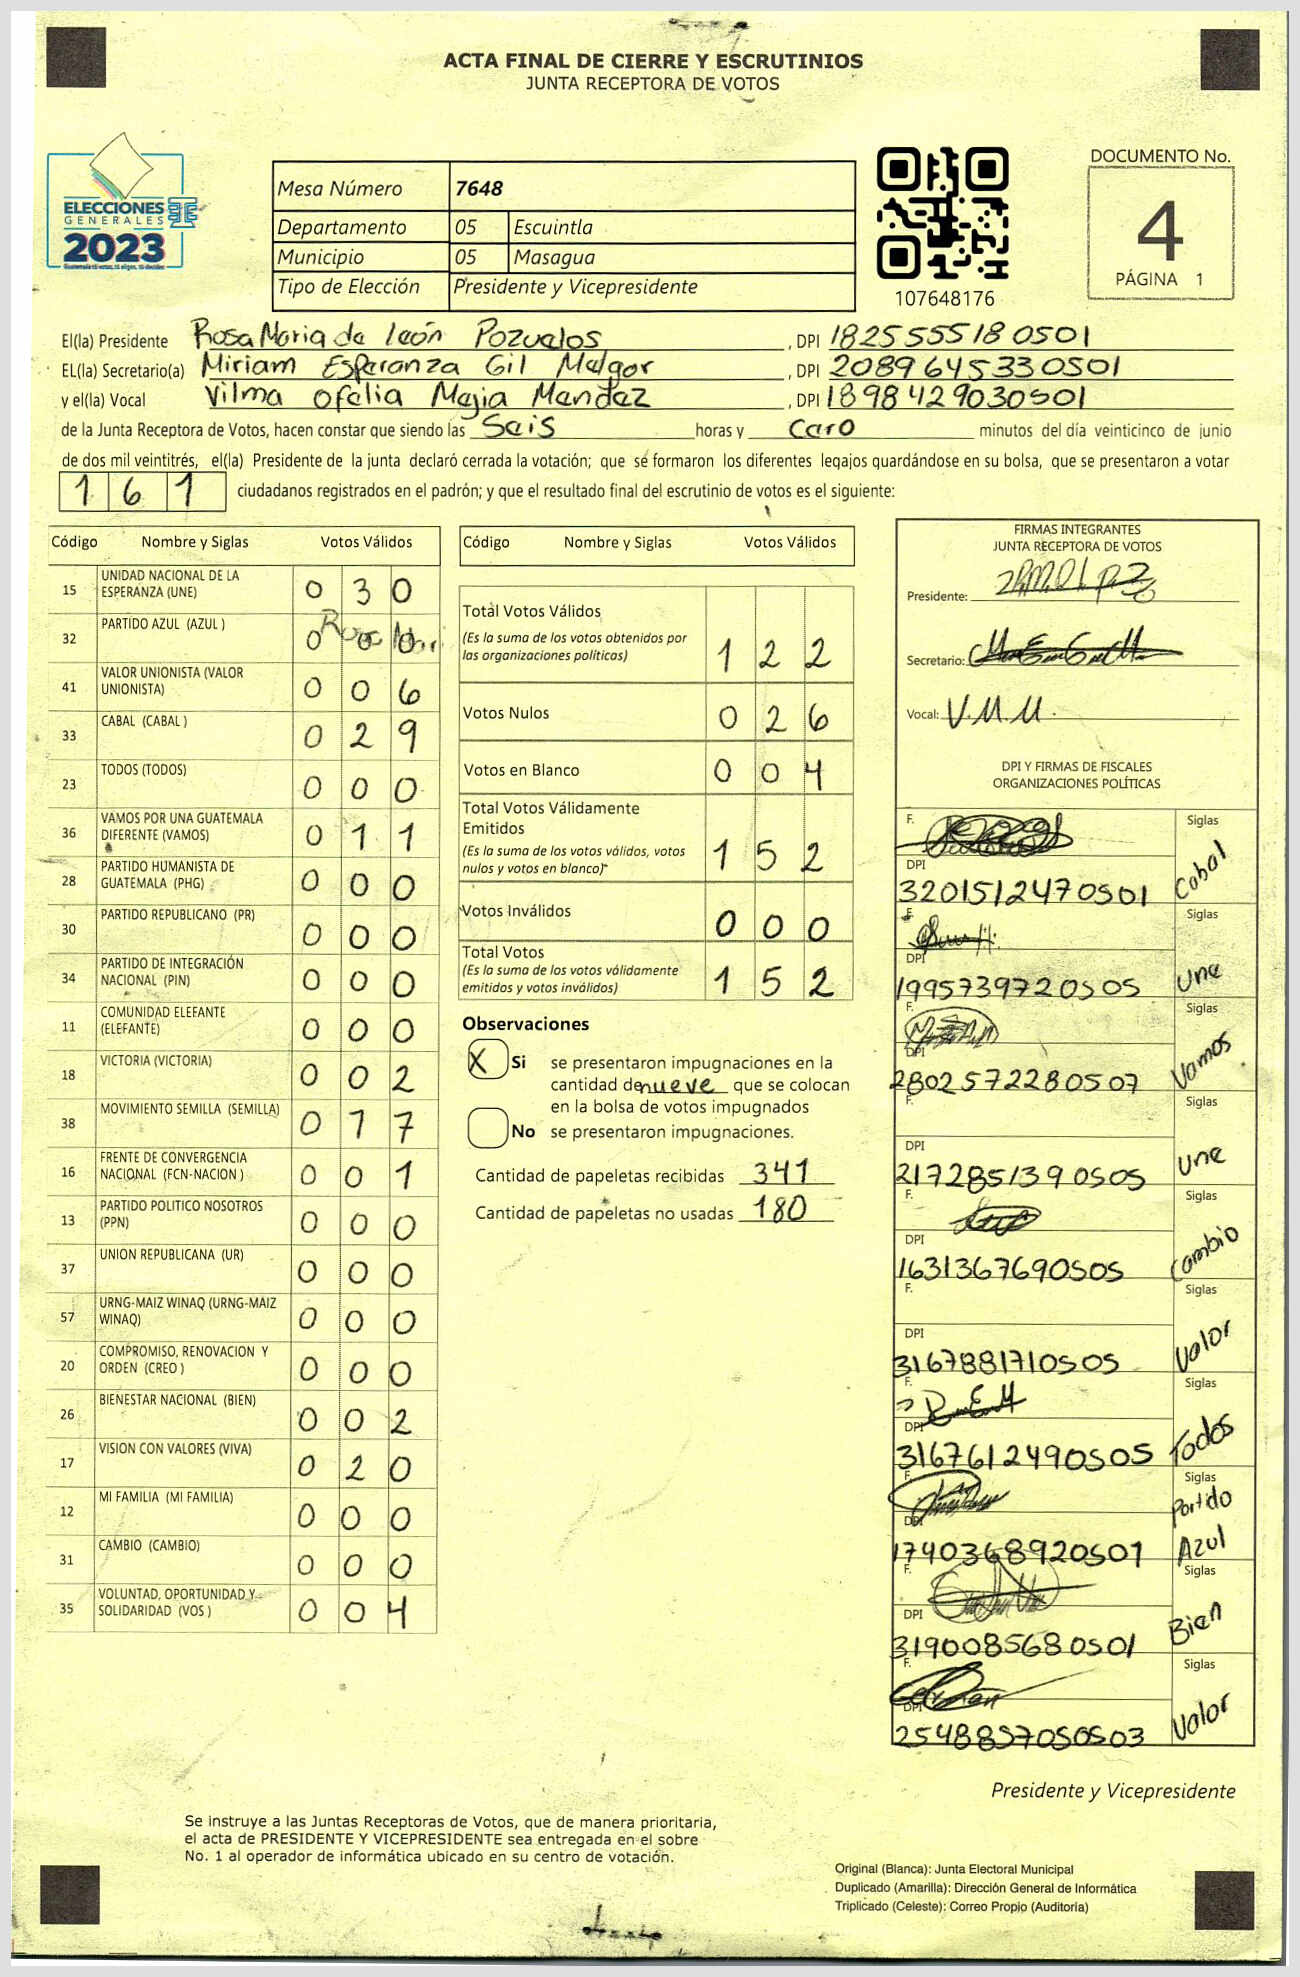 ACTA FINAL DE CIERRE Y ESCRUTINIOS
JUNTA RECEPTORA DE VOTOS
ELECCIONES
GENERALES
2023
Mesa Número 7648
Departamento 05 Escuintla
Municipio 05 Masagua
Tipo de Elección Presidente y Vicepresidente
107648176
DOCUMENTO No.
4
PÁGINA 1
El(la) Presidente Rosa Maria de león Pozuelos , DPI 1825555180501
EL(la) Secretario(a) Miriam Esperanza Gil Melgar , DPI 2089645330501
y el(la) Vocal Vilma Ofelia Mejia Mendez , DPI 1898429030501
de la Junta Receptora de Votos, hacen constar que siendo las Seis horas y Cero minutos del día veinticinco de junio
de dos mil veintitrés, el(la) Presidente de la junta declaró cerrada la votación; que se formaron los diferentes legajos guardándose en su bolsa, que se presentaron a votar
1 6 1 ciudadanos registrados en el padrón; y que el resultado final del escrutinio de votos es el siguiente:
Código Nombre y Siglas Votos Válidos
15 UNIDAD NACIONAL DE LA ESPERANZA (UNE) 0 3 0
32 PARTIDO AZUL (AZUL ) 0 0 0
41 VALOR UNIONISTA (VALOR UNIONISTA) 0 0 6
33 CABAL (CABAL ) 0 2 9
23 TODOS (TODOS) 0 0 0
36 VAMOS POR UNA GUATEMALA DIFERENTE (VAMOS) 0 1 1
28 PARTIDO HUMANISTA DE GUATEMALA (PHG) 0 0 0
30 PARTIDO REPUBLICANO (PR) 0 0 0
34 PARTIDO DE INTEGRACIÓN NACIONAL (PIN) 0 0 0
11 COMUNIDAD ELEFANTE (ELEFANTE) 0 0 0
18 VICTORIA (VICTORIA) 0 0 2
38 MOVIMIENTO SEMILLA (SEMILLA) 0 1 7
16 FRENTE DE CONVERGENCIA NACIONAL (FCN-NACION ) 0 0 1
13 PARTIDO POLITICO NOSOTROS (PPN) 0 0 0
37 UNION REPUBLICANA (UR) 0 0 0
57 URNG-MAIZ WINAQ (URNG-MAIZ WINAQ) 0 0 0
20 COMPROMISO, RENOVACION Y ORDEN (CREO ) 0 0 0
26 BIENESTAR NACIONAL (BIEN) 0 0 2
17 VISION CON VALORES (VIVA) 0 2 0
12 MI FAMILIA (MI FAMILIA) 0 0 0
31 CAMBIO (CAMBIO) 0 0 0
35 VOLUNTAD, OPORTUNIDAD Y SOLIDARIDAD (VOS ) 0 0 4
Código Nombre y Siglas Votos Válidos
Total Votos Válidos
(Es la suma de los votos obtenidos por
las organizaciones políticas) 1 2 2
Votos Nulos 0 2 6
Votos en Blanco 0 0 4
Total Votos Válidamente
Emitidos
(Es la suma de los votos válidos, votos
nulos y votos en blanco) 1 5 2
Votos Inválidos 0 0 0
Total Votos
(Es la suma de los votos válidamente
emitidos y votos inválidos) 1 5 2
Observaciones
X Si se presentaron impugnaciones en la
cantidad de nueve que se colocan
en la bolsa de votos impugnados
No se presentaron impugnaciones.
Cantidad de papeletas recibidas 341
Cantidad de papeletas no usadas 180
FIRMAS INTEGRANTES
JUNTA RECEPTORA DE VOTOS
Presidente:
Secretario:
Vocal: V.M.M.
DPI Y FIRMAS DE FISCALES
ORGANIZACIONES POLÍTICAS
F. Siglas
DPI
3201512470501 Cabal
F. Siglas
DPI
1995739720505 Une
F. Siglas
DPI
2802572280507 Vamos
F. Siglas
DPI
2172851390505 Une
F. Siglas
DPI
1631367690505 Cambio
F. Siglas
DPI
3167881710505 Valor
F. Siglas
DPI
3167612490505 Todos
F. Siglas
DPI
1740368920501 Partido Azul
F. Siglas
DPI
3190085680501 Bien
F. Siglas
DPI
2548857050503 Valor
Presidente y Vicepresidente
Se instruye a las Juntas Receptoras de Votos, que de manera prioritaria,
el acta de PRESIDENTE Y VICEPRESIDENTE sea entregada en el sobre
No. 1 al operador de informática ubicado en su centro de votación.
Original (Blanca): Junta Electoral Municipal
Duplicado (Amarilla): Dirección General de Informática
Triplicado (Celeste): Correo Propio (Auditoría)